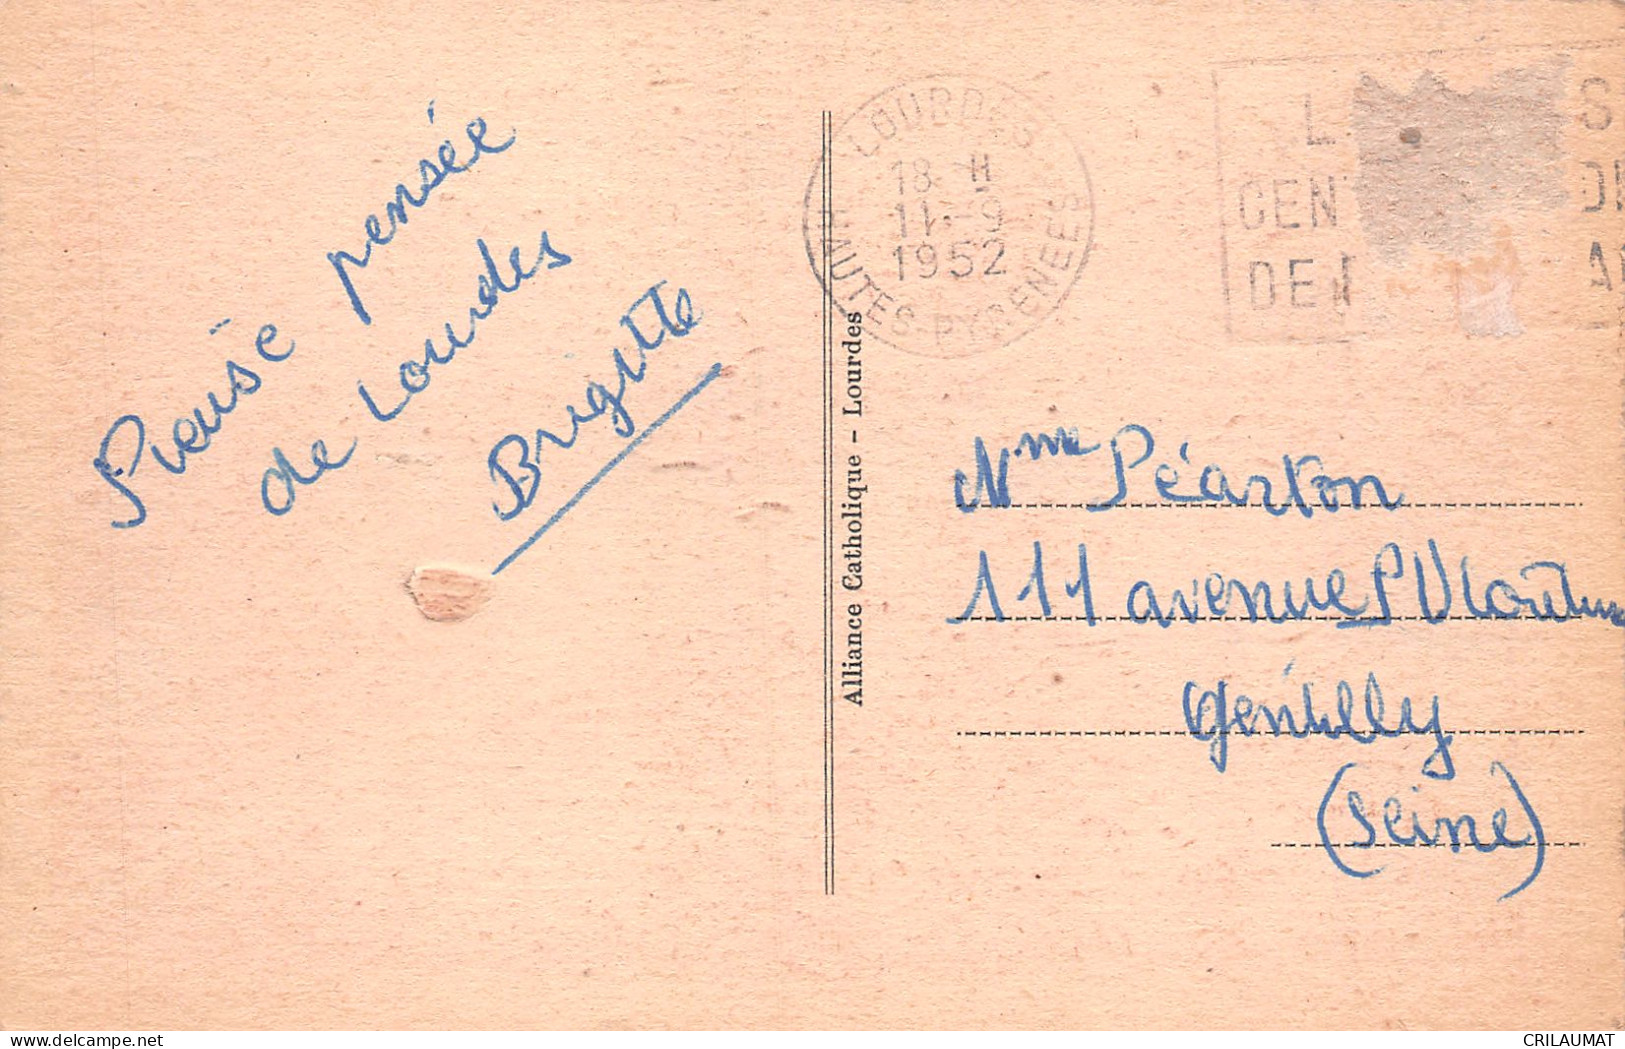 Pieuse pensée
de Lourdes
Brigitte
Alliance Catholique - Lourdes
LOURDES
18 H
11-9
1952
HAUTES PYRENEES
L S
CEN D
DE
Mme Péarton
111 avenue P V
Gentilly
(Seine)
delcampe.net
CRILAUMAT